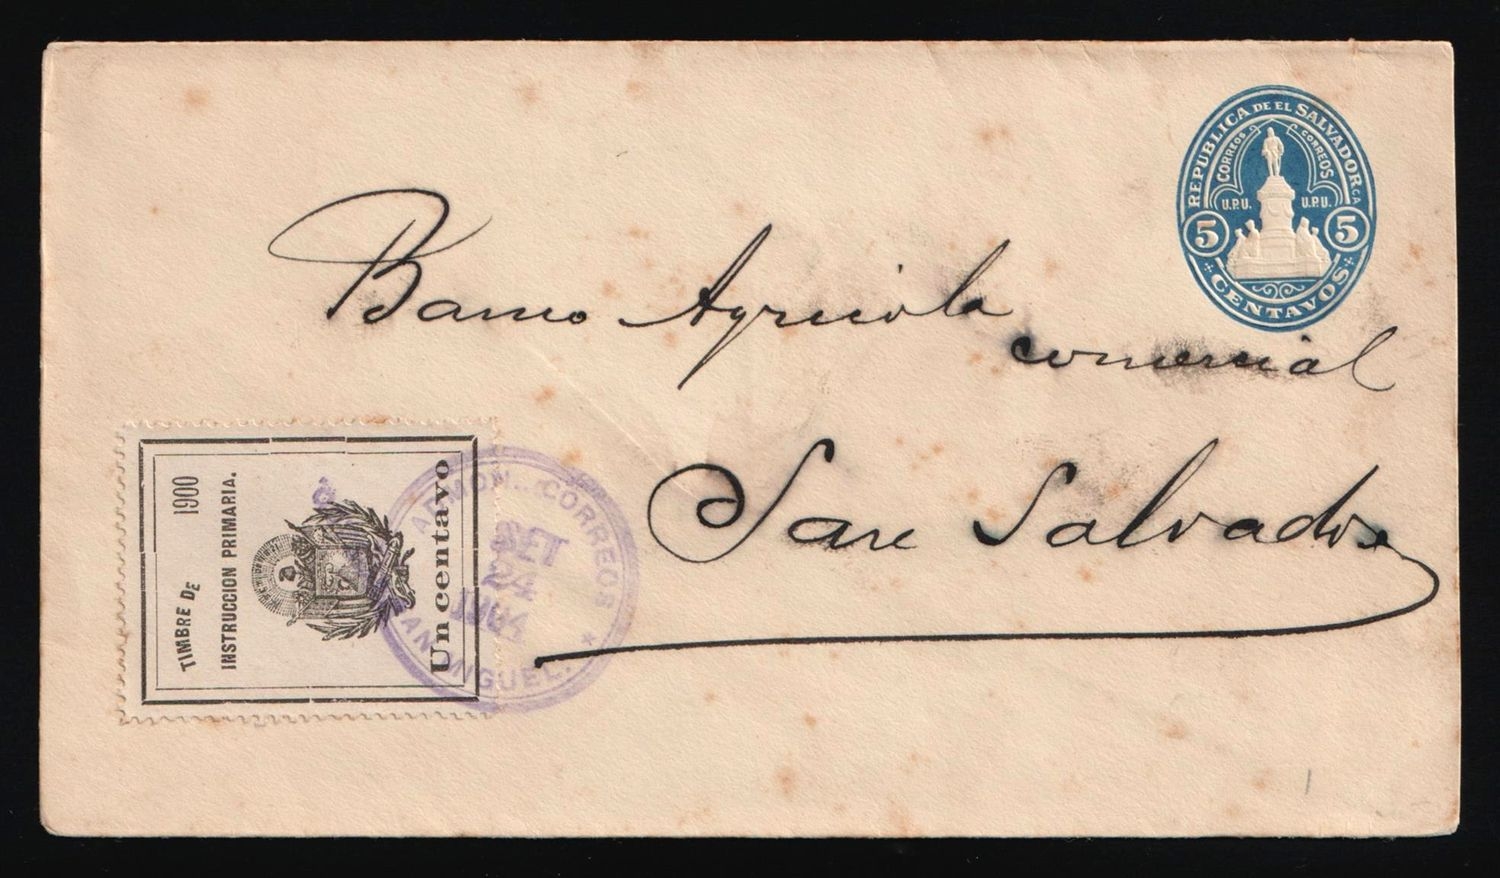 REPUBLICA DE EL SALVADOR CA
CORREOS CORREOS
U.P.U. U.P.U.
5 5
CENTAVOS
Banco Agricola
comercial
San Salvador
TIMBRE DE 1900
INSTRUCCION PRIMARIA.
Un centavo
ADMON. CORREOS
SET
24
SAN MIGUEL.